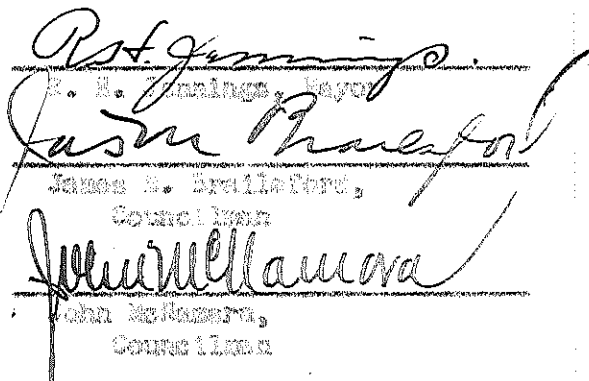 R. H. Jennings.
R. H. Jennings, Mayor
Jas M Brailsford
James M. Brailsford,
Councilman
John McNamara
John McNamara,
Councilman